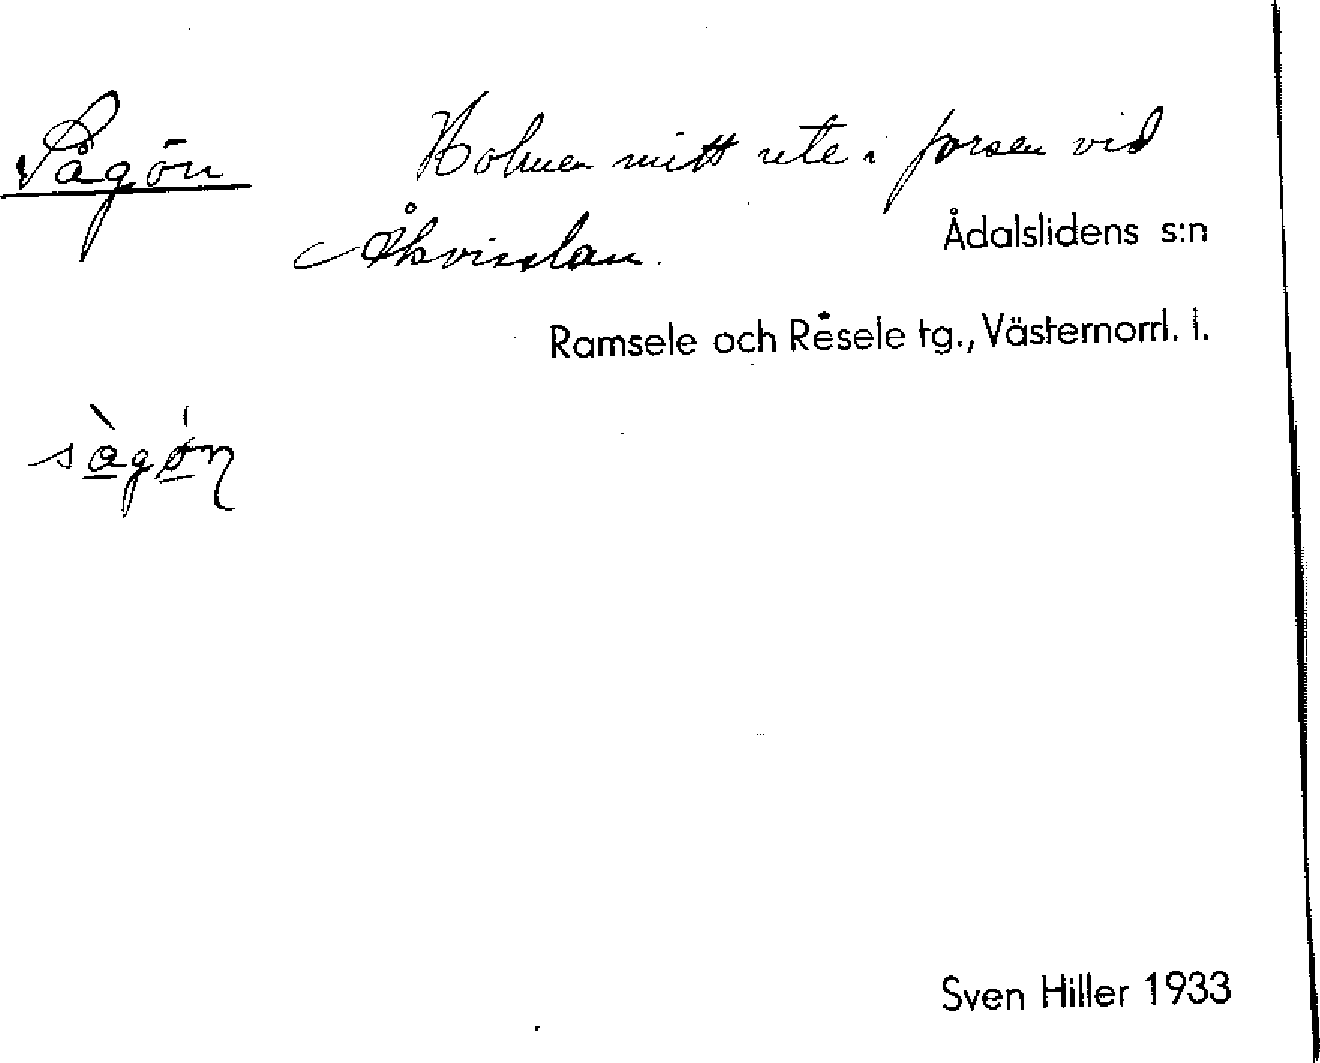 Sågön Holmen mitt ute i forsen vid
Åkvisslan.
Ådalslidens s:n
Ramsele och Resele tg., Västernorrl. l.
sàgǿn
Sven Hiller 1933